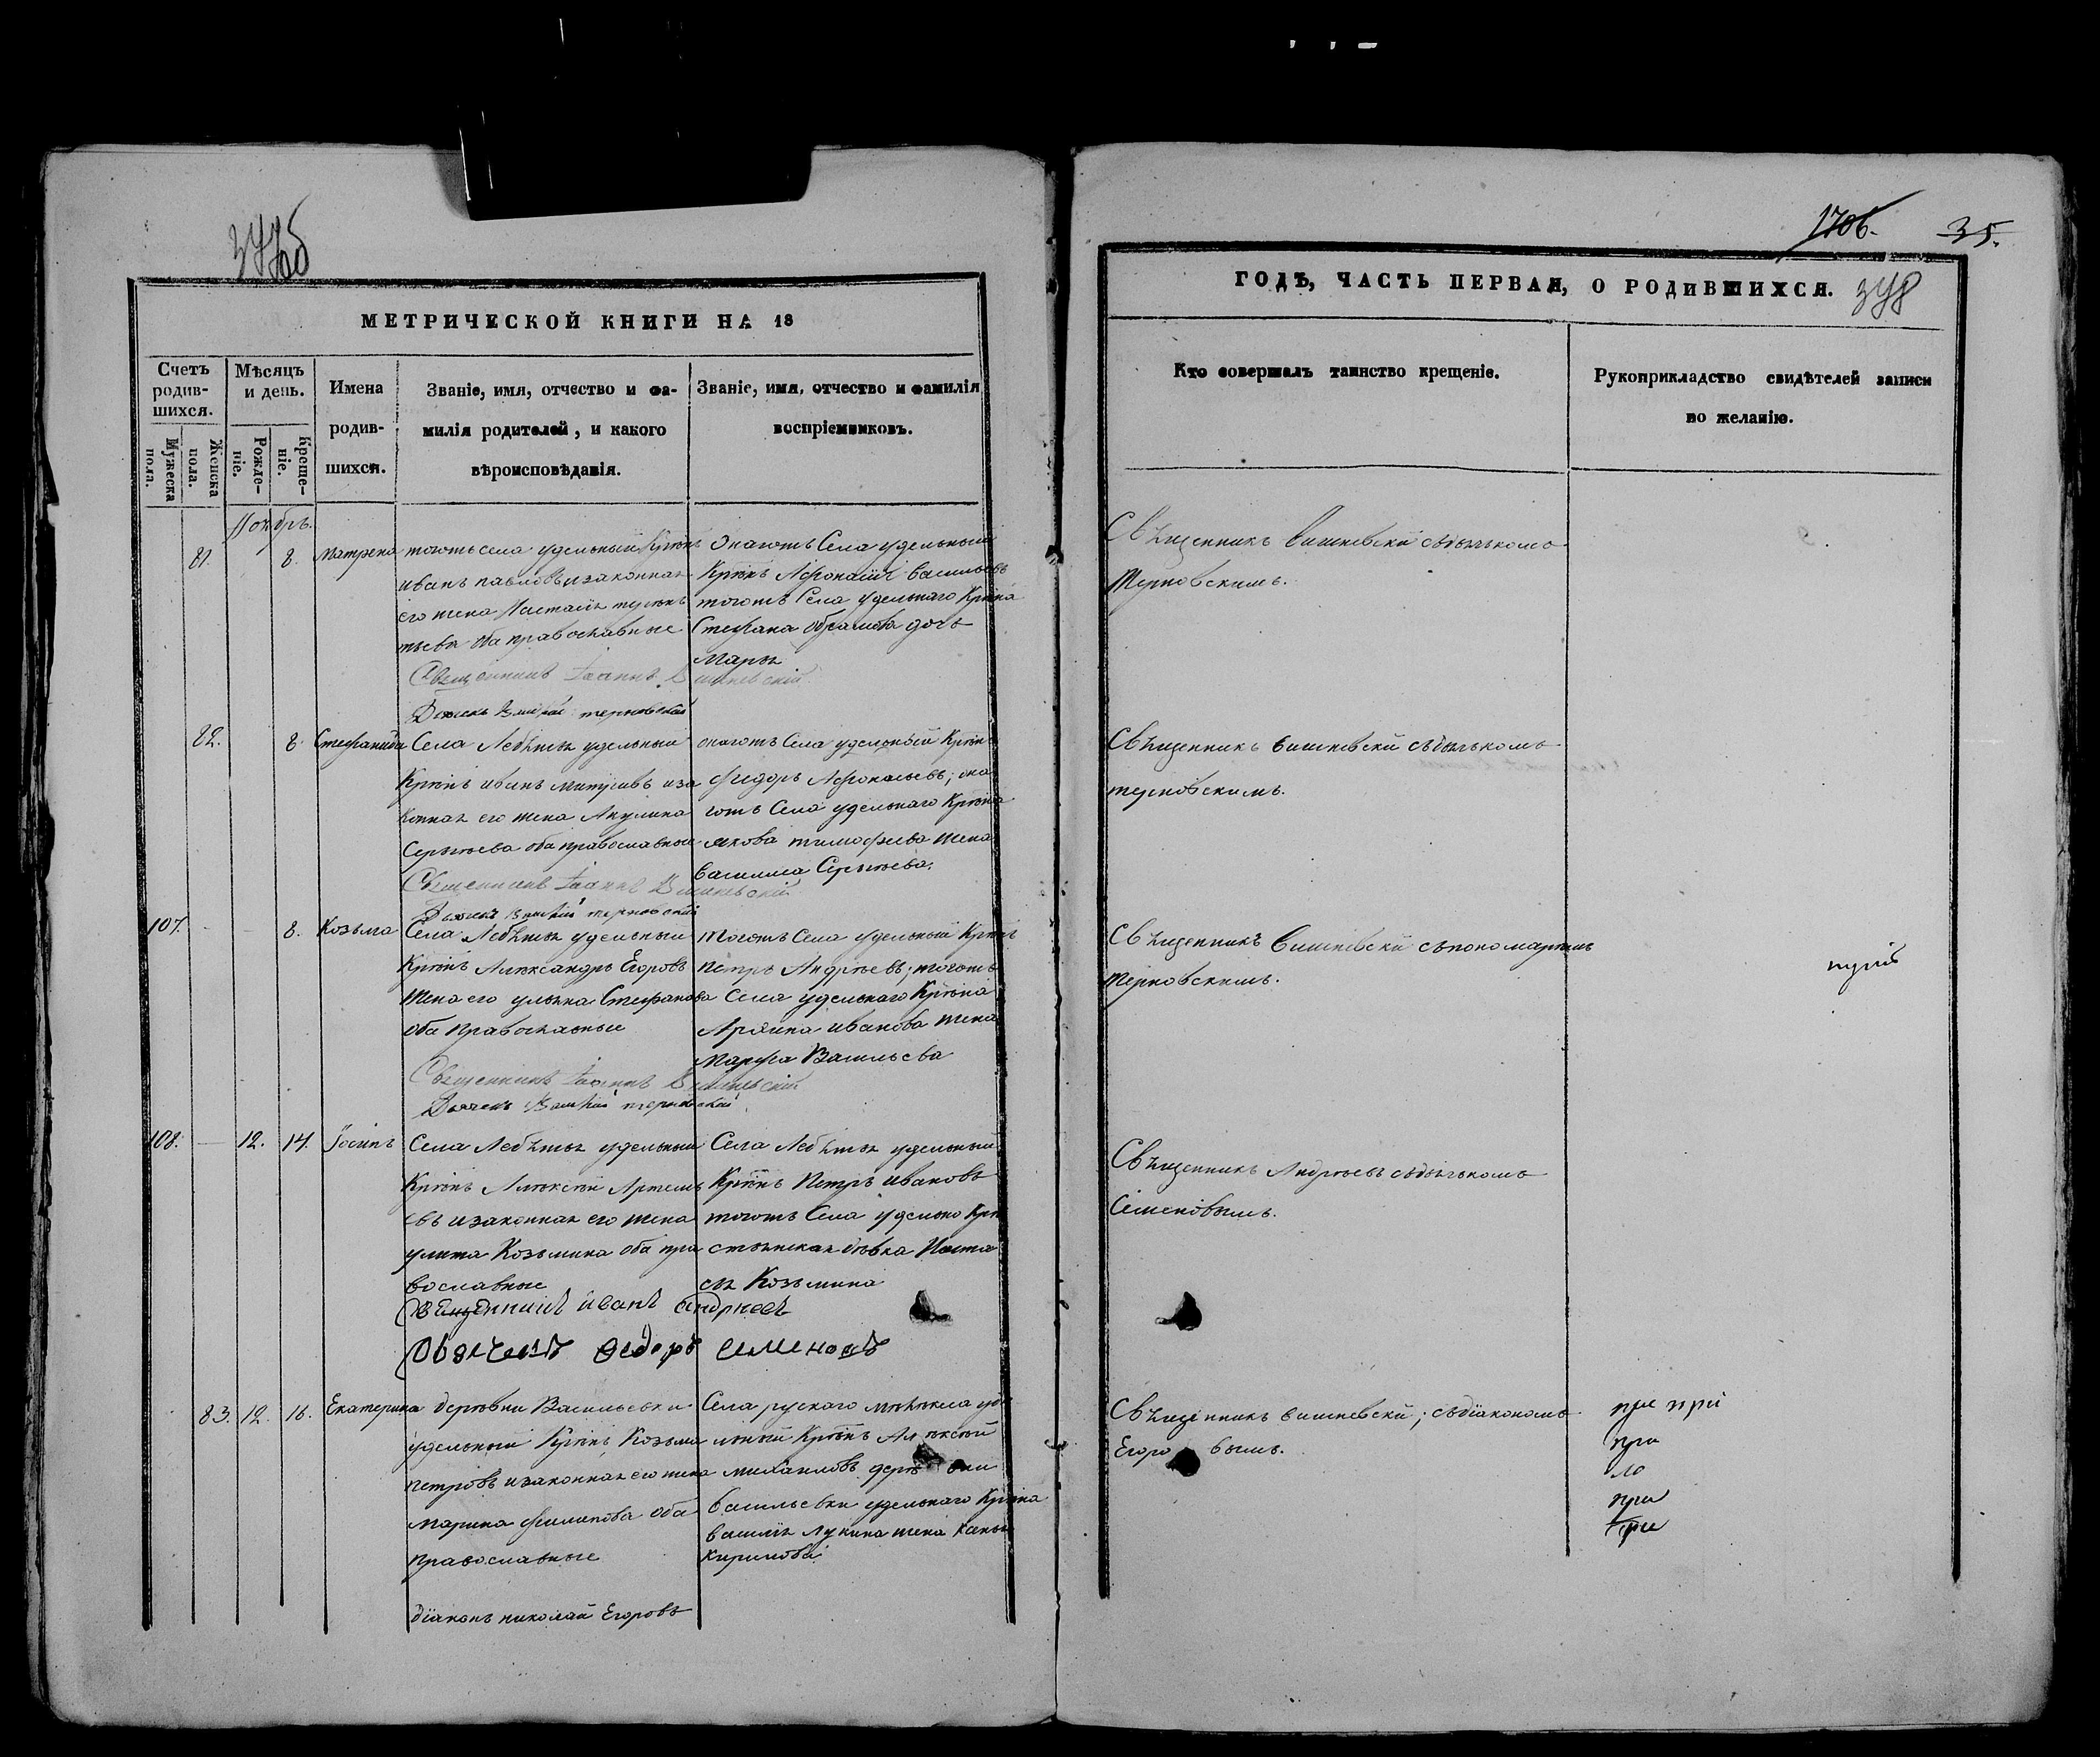 377об
МЕТРИЧЕСКОЙ КНИГИ НА 18
Счетъ родив-шихся.
Мужеска пола.
Женска пола.
Мѣсяцъ и день.
Рожде-ніе.
Креще-ніе.
Имена
родив-
шихся.
Званіе, имя, отчество и фа-
милія родителей, и какого
вѣроисповѣданія.
Званіе, имя, отчество и фамилія
воспріемниковъ.
Ноябрь.
81. 8. Матрена
тогожъ села удельный Крѣнъ
иванъ павловъ изаконная
его жена Настасія
оба православные
Священникъ Іоаннъ Вишневскій
Дьячекъ терновскій
Онагожъ Села удельный
Крѣнъ Афонасій васильевъ
тогожъ Села удельнаго Крѣна
Стефана обрамова дочь
Марья
82. 8. Стефанида
Села Лебѣжья удельный
Крѣнъ иванъ иза
конная его жена Акулина
Сергѣева оба православные
Священникъ Іоаннъ Вишневскій
Дьячекъ терновскій
онагожъ Села удельной Крѣнъ
Фидоръ Афонасьевъ; она
гожъ Села удельнаго Крѣна
якова тимофеева жена
василиса Сергѣева.
107. 8. Козьма
Села Лебѣжья удельный
Крѣнъ Алѣксандръ Егоровъ
жена его ульяна Стефанова
оба православные
Священникъ Іоаннъ Вишневскій
Дьячекъ терновскій
тогожъ Села удельный Крѣнъ
петръ Андрѣевъ; тогожъ
Села удельнаго Крѣна
иванова жена
Марфа Васильева
108. — 12. 14. Іосипъ
Села Лебѣжья удельный
Крѣнъ Алѣксѣй Артемь
евъ изаконная его жена
улита Козьмина оба пра
вославные
Священникъ иванъ андрѣевъ
Дьячекъ Ѳедоръ семеновъ
Села Лебѣжья удельный
Крѣнъ Петръ ивановъ
тогожъ Села удельно Крѣ
стьянская дѣвка Наста
сья Козьмина
83. 12. 16. Екатерина
дерѣвни Васильевки
удельный Крѣнъ Козьма
петровъ изаконная его жена
марина филипова оба
православные
діаконъ николай Егоровъ
Села рускаго уде
льный Крѣнъ Алѣксѣй
михаиловъ дерѣвни
васильевки удельнаго Крѣна
василія лукина жена
кирилова
1706. 35.
ГОДЪ, ЧАСТЬ ПЕРВАЯ, О РОДИВШИХСЯ. 378
Кто совершалъ таинство крещеніе.
Рукоприкладство свидѣтелей записи
по желанію.
Свѣщенникъ вишневскій съдьячькомъ
терновскимъ.
Свѣщенникъ вишневскій съдьячькомъ
терновскимъ.
Свѣщенникъ вишневскій съпономаремъ
терновскимъ.
Свѣщенникъ Андрѣевъ съдьячькомъ
Семеновымъ.
Свѣщенникъ вишневскій; съдіакономъ
Егоровымъ.
при